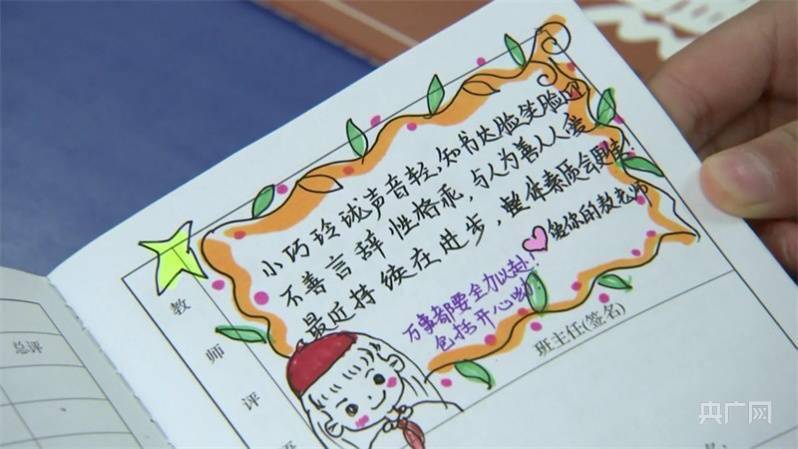 小巧玲珑声音轻,知书达脸笑脸迎
不善言辞性格乖,与人为善人人爱
最近持续在进步,整体素质会更佳.
爱你的数老师
万事都要全力以赴!
包括开心哟
班主任(签名)
教
师
评
语
总评
央广网